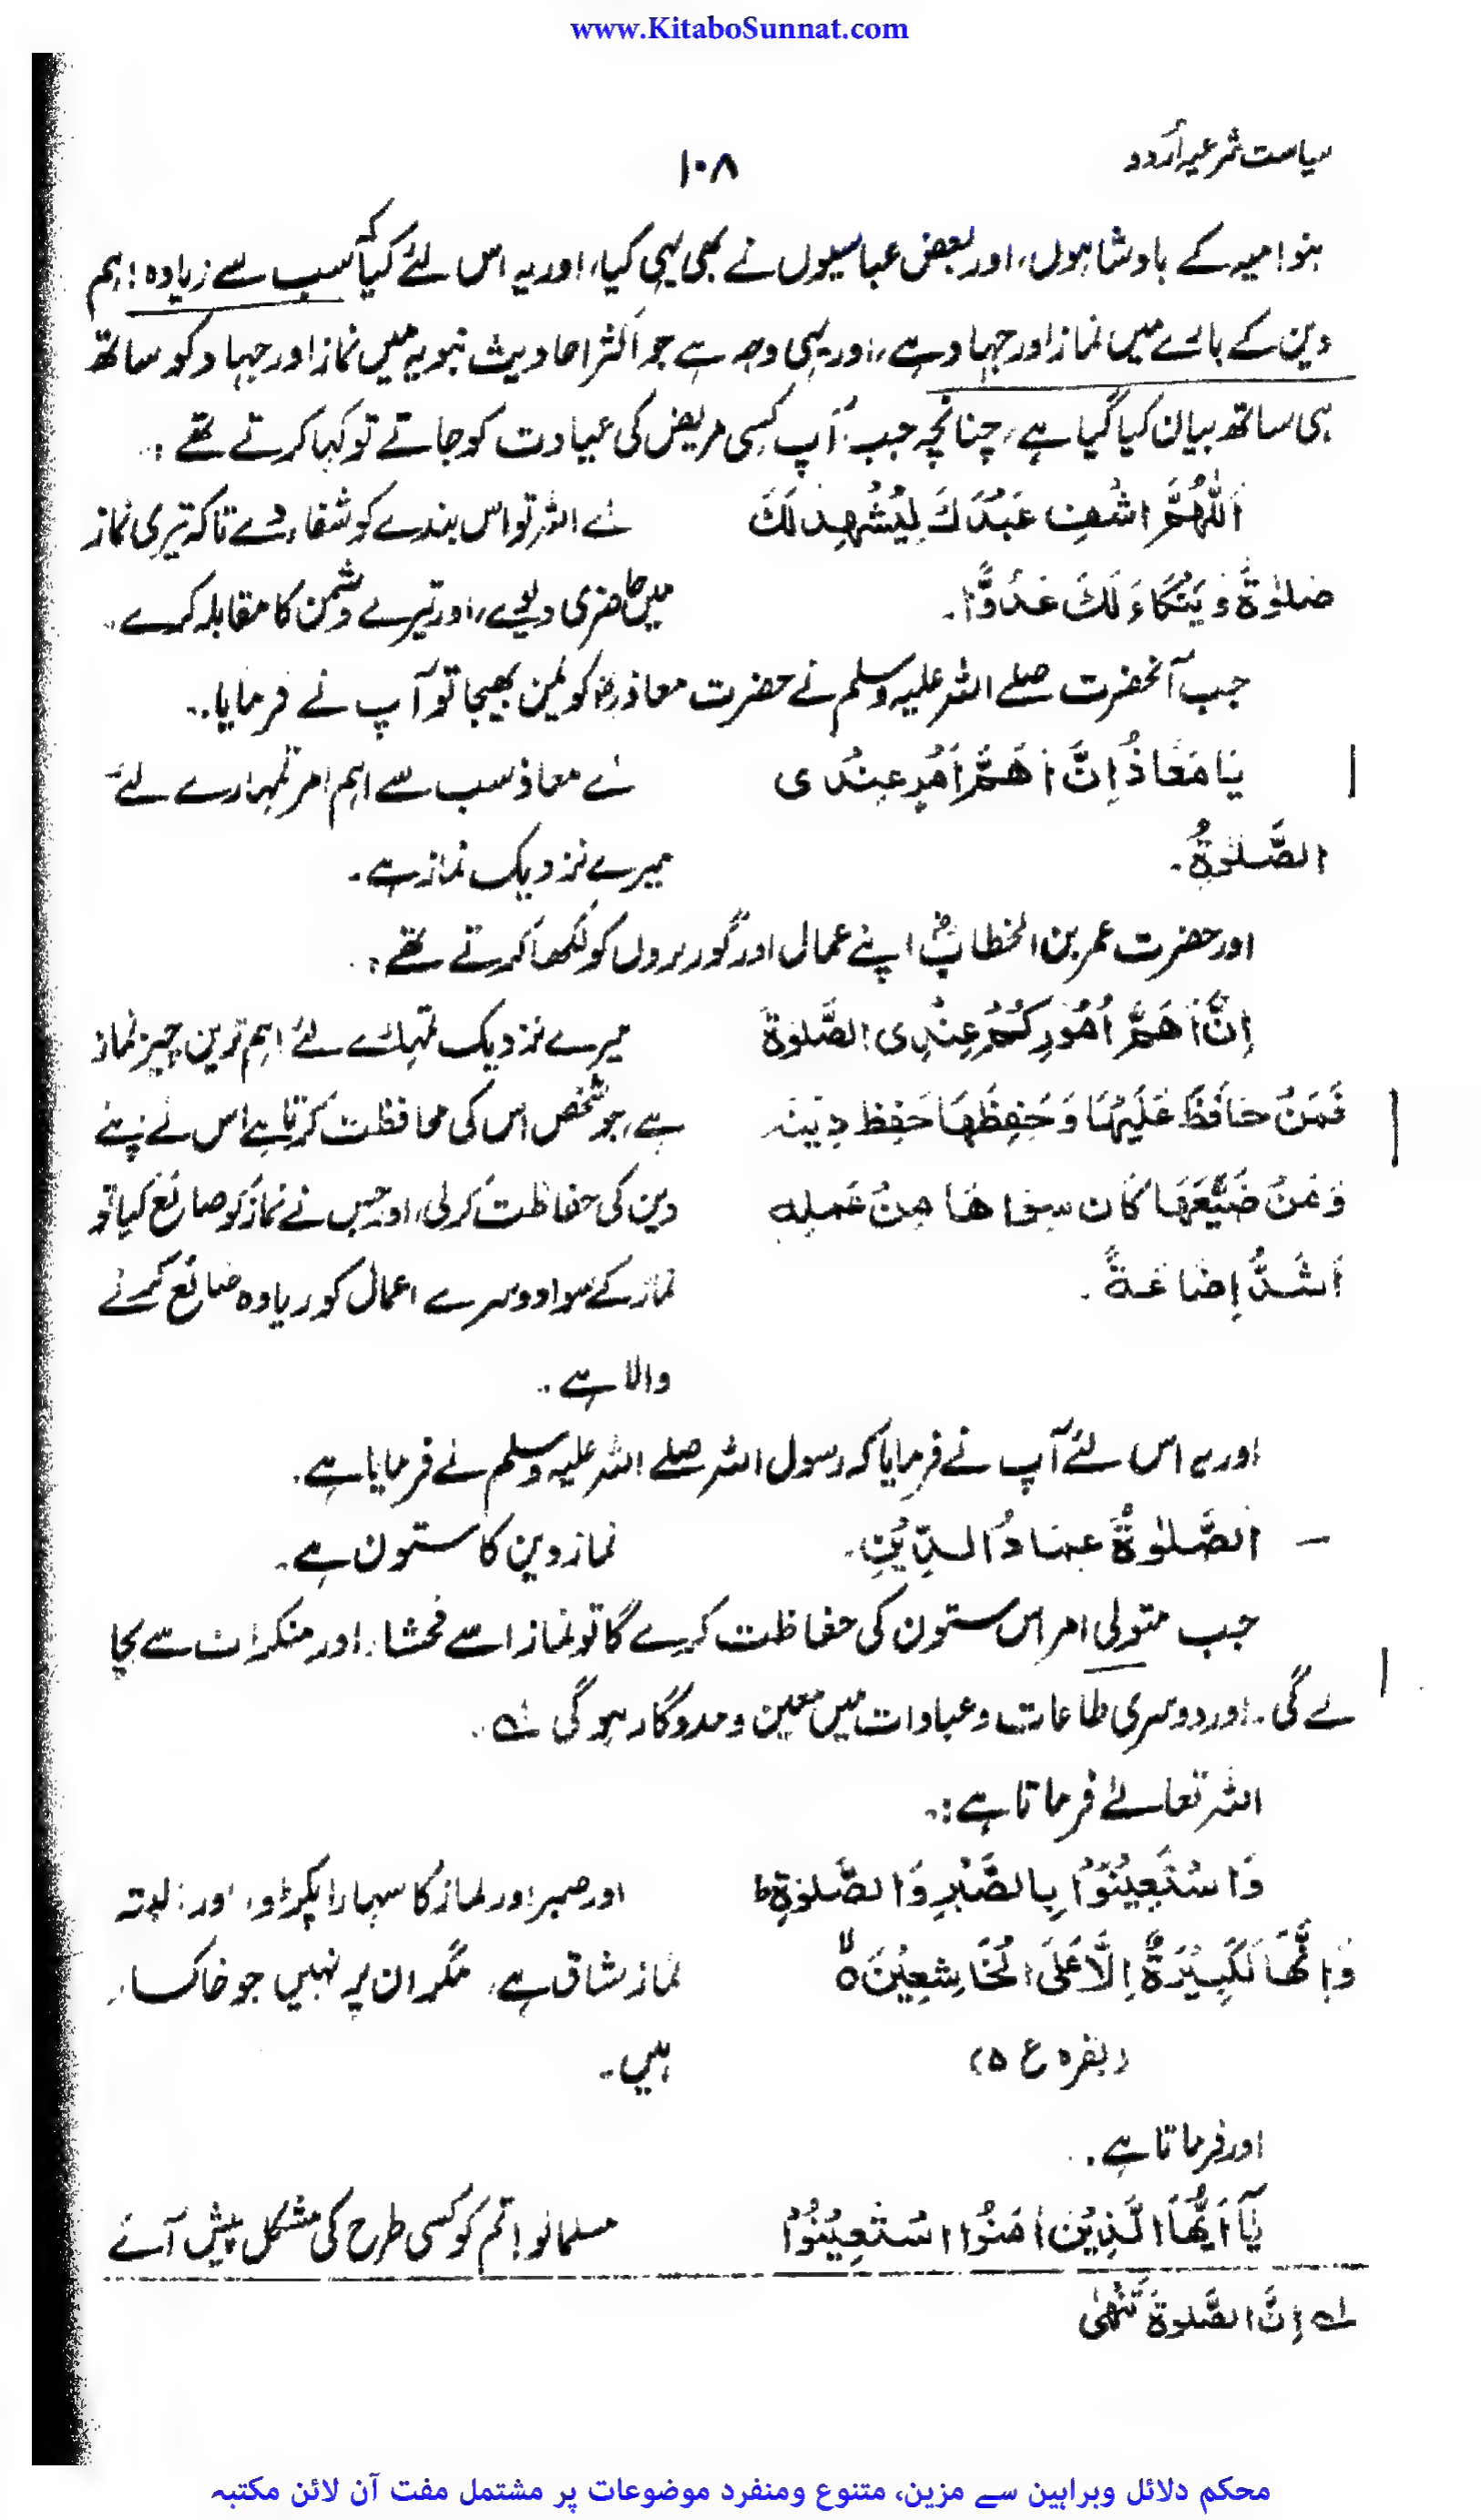 www.KitaboSunnat.com
سیاست شرعیہ اُردو
۱۰۸
بنو امیہ کے بادشاہوں، اور بعض عباسیوں نے بھی یہی کیا، اور یہ اس لئے کیا کہ سب سے زیادہ اہم
دین کے بارے میں نماز اور جہاد ہے، اور یہی وجہ ہے جو اکثر احادیث نبویہ میں نماز اور جہاد کو ساتھ
ہی ساتھ بیان کیا گیا ہے، چنانچہ جب آپ کسی مریض کی عیادت کو جاتے تو کہا کرتے تھے :۔
اَللّٰهُمَّ اشْفِ عَبْدَكَ لِیَشْهِدَ لَكَ
اے اللہ تو اس بندے کو شفاء دے تاکہ تیری نماز
صَلٰوةً وَیَنْكَاءَ لَكَ عَدُوًّا۔
میں حاضری دیوے، اور تیرے دشمن کا مقابلہ کرے۔
جب آنحضرت صلے اللہ علیہ وسلم نے حضرت معاذؓ کو یمن بھیجا تو آپ نے فرمایا۔
یَا مَعَاذُ اِنَّ اَهَمَّ اَمْرٍ عِنْدِی
اے معاذ سب سے اہم امر تمہارے لئے
الصَّلٰوةُ۔
میرے نزدیک نماز ہے۔
اور حضرت عمر بن الخطابؓ اپنے عمال اور گورنروں کو لکھا کرتے تھے:۔
اِنَّ اَهَمَّ اُمُوْرِكُمْ عِنْدِی الصَّلٰوةُ
میرے نزدیک تمہارے لئے اہم ترین چیز نماز
فَمَنْ حَافَظَ عَلَیْهَا وَحَفِظَهَا حَفِظَ دِیْنَهٗ
ہے، جو شخص اس کی محافظت کرتا ہے اس نے اپنے
وَمَنْ ضَیَّعَهَا كَانَ سِوَاهَا مِنْ عَمَلِهٖ
دین کی حفاظت کرلی، اور جس نے نماز کو ضائع کیا تو
اَشَدُّ اِضَاعَةً۔
نماز کے سوا دوسرے اعمال کو زیادہ ضائع کرنے
والا ہے۔
اور یہ اس لئے آپ نے فرمایا کہ رسول اللہ صلے اللہ علیہ وسلم نے فرمایا ہے۔
اَلصَّلٰوةُ عِمَادُ الدِّیْنِ۔
نماز دین کا ستون ہے۔
جب متولی امر اس ستون کی حفاظت کرے گا تو نماز اسے فحشاء اور منکرات سے بچا
لے گی۔ اور دوسری طاعات و عبادات میں معین و مددگار ہوگی لہ۔
اللہ تعالےٰ فرماتا ہے:۔
وَاسْتَعِیْنُوْا بِالصَّبْرِ وَالصَّلٰوةِ ط
اور صبر اور نماز کا سہارا پکڑو، اور البتہ
وَاِنَّهَا لَكَبِیْرَةٌ اِلَّا عَلَی الْخَاشِعِیْنَ ہ لا
نماز شاق ہے، مگر ان پر نہیں جو خاکسار
(بقرہ ع ۵)
ہیں۔
اور فرماتا ہے۔
یَآ اَیُّهَا الَّذِیْنَ اٰمَنُوا اسْتَعِیْنُوْا
مسلمانو! تم کو کسی طرح کی مشکل پیش آئے
لہ اِنَّ الصَّلٰوةَ تَنْهٰی
محکم دلائل وبراہین سے مزین، متنوع ومنفرد موضوعات پر مشتمل مفت آن لائن مکتبہ